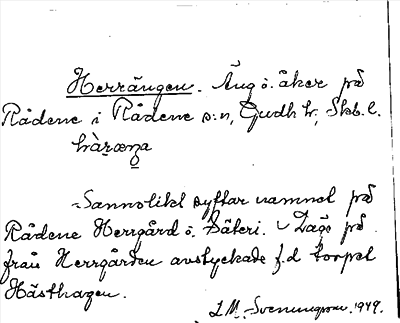 Herrängen. Äng o. åker på
Rådene i Rådene s:n, Gudh. hd; Skb. l.
hær̀æŋa
Sannolikt syftar namnet på
Rådene Herrgård o. Säteri. Läge på
från Herrgården avstyckade f.d torpet
Hästhagen.
I. M. Svenungsson. 1949.